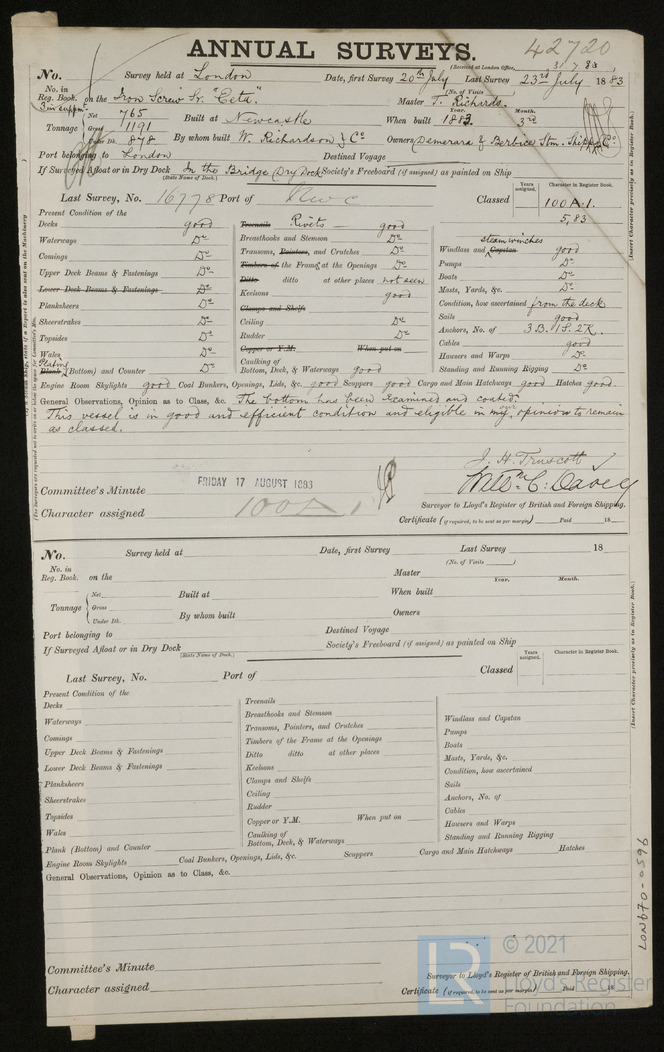 ANNUAL SURVEYS.
42720
(Received at London Office, 31.7.83
No. Survey held at London Date, first Survey 20th July Last Survey 23rd July 1883
No. in Reg. Book. on the Iron Screw Sr. "Eeta." (No. of Visits ) Master T. Richards.
3 in suppmt
Tonnage Net 765 Gross 1191 Under Dk. 878 Built at Newcastle When built Year. 1883. Month. 3rd
By whom built W. Richardson & Co Owners Demerara & Berbice Stm. Shippg Co.
Port belonging to London Destined Voyage
If Surveyed Afloat or in Dry Dock In the Bridge Dry Dock Society's Freeboard (if assigned) as painted on Ship
(State Name of Dock.)
Last Survey, No. 16778 Port of Newc Classed Years assigned. Character in Register Book. 100A.1. 5,83
Present Condition of the
Decks good
Waterways Do
Comings Do
Upper Deck Beams & Fastenings Do
Lower Deck Beams & Fastenings
Planksheers Do
Sheerstrakes Do
Topsides Do
Wales Do
Plating
Plank (Bottom) and Counter Do
Treenails Rivets good
Breasthooks and Stemson Do
Transoms, Pointers, and Crutches Do
Timbers of the Frame at the Openings Do
Ditto ditto at other places not seen
Keelsons good
Clamps and Shelfs
Ceiling Do
Rudder Do
Copper or Y.M. When put on
Caulking of Bottom, Deck, & Waterways good
steam winches
Windlass and Capstan good
Pumps Do
Boats Do
Masts, Yards, &c. Do
Condition, how ascertained from the deck
Sails good
Anchors, No. of 3B. 1S. 2K.
Cables good
Hawsers and Warps Do
Standing and Running Rigging Do
Engine Room Skylights good Coal Bunkers, Openings, Lids, &c. good Scuppers good Cargo and Main Hatchways good Hatches good.
General Observations, Opinion as to Class, &c. The bottom has been examined and coated.
This vessel is in good and efficient condition and eligible in my opinion to remain
as classed.
J. H. Truscott
Wm. C. Davey
Committee's Minute FRIDAY 17 AUGUST 1883
Character assigned 100A1
Surveyor to Lloyd's Register of British and Foreign Shipping.
Certificate (if required, to be sent as per margin) Paid 18
No. Survey held at Date, first Survey Last Survey 18
(No. of Visits )
No. in Reg. Book. on the Master
Year. Month.
Tonnage Net Gross Under Dk. Built at When built
By whom built Owners
Port belonging to Destined Voyage
If Surveyed Afloat or in Dry Dock Society's Freeboard (if assigned) as painted on Ship
(State Name of Dock.)
Last Survey, No. Port of Classed Years assigned. Character in Register Book.
Present Condition of the
Decks
Waterways
Comings
Upper Deck Beams & Fastenings
Lower Deck Beams & Fastenings
Planksheers
Sheerstrakes
Topsides
Wales
Plank (Bottom) and Counter
Treenails
Breasthooks and Stemson
Transoms, Pointers, and Crutches
Timbers of the Frame at the Openings
Ditto ditto at other places
Keelsons
Clamps and Shelfs
Ceiling
Rudder
Copper or Y.M. When put on
Caulking of Bottom, Deck, & Waterways
Windlass and Capstan
Pumps
Boats
Masts, Yards, &c.
Condition, how ascertained
Sails
Anchors, No. of
Cables
Hawsers and Warps
Standing and Running Rigging
Engine Room Skylights Coal Bunkers, Openings, Lids, &c. Scuppers Cargo and Main Hatchways Hatches
General Observations, Opinion as to Class, &c.
Committee's Minute
Character assigned
Surveyor to Lloyd's Register of British and Foreign Shipping.
Certificate (if required, to be sent as per margin) Paid 18
(Insert Character precisely as in Register Book.)
(Insert Character precisely as in Register Book.)
LON670-0596
LR
© 2021
Lloyd's Register
Foundation